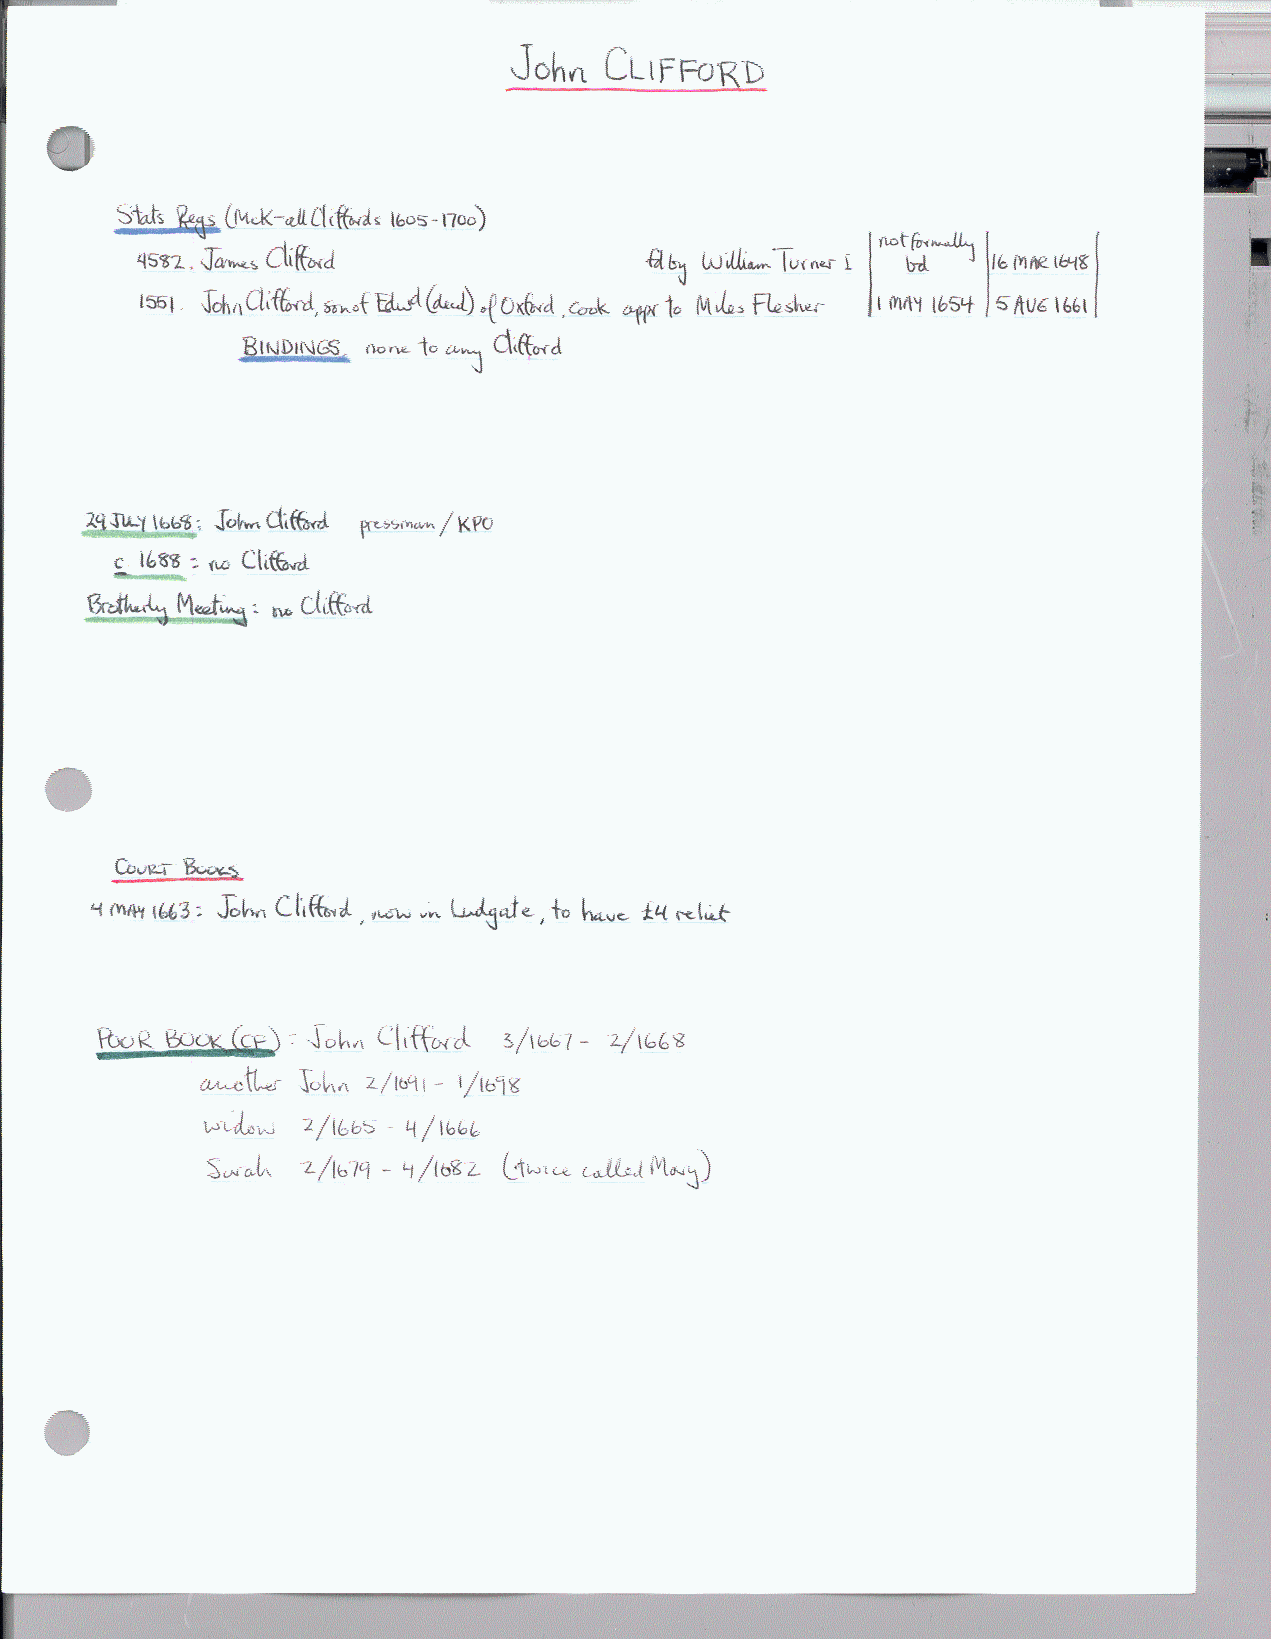 John CLIFFORD
Stats Regs (McK-all Cliffords 1605-1700)
4582. James Clifford fd by William Turner I not formally bd 16 MAR 1648
1551. John Clifford, son of Edwd (decd) of Oxford, cook appr to Miles Flesher 1 MAY 1654 5 AUG 1661
BINDINGS none to any Clifford
29 JULY 1668: John Clifford pressman / KPO
c 1688 = no Clifford
Brotherly Meeting: no Clifford
COURT BOOKS
4 MAY 1663: John Clifford, now in Ludgate, to have £4 relief
POOR BOOK (CF): John Clifford 3/1667 - 2/1668
another John 2/1691 - 1/1698
widow 2/1665 - 4/1666
Sarah 2/1679 - 4/1682 (twice called Mary)